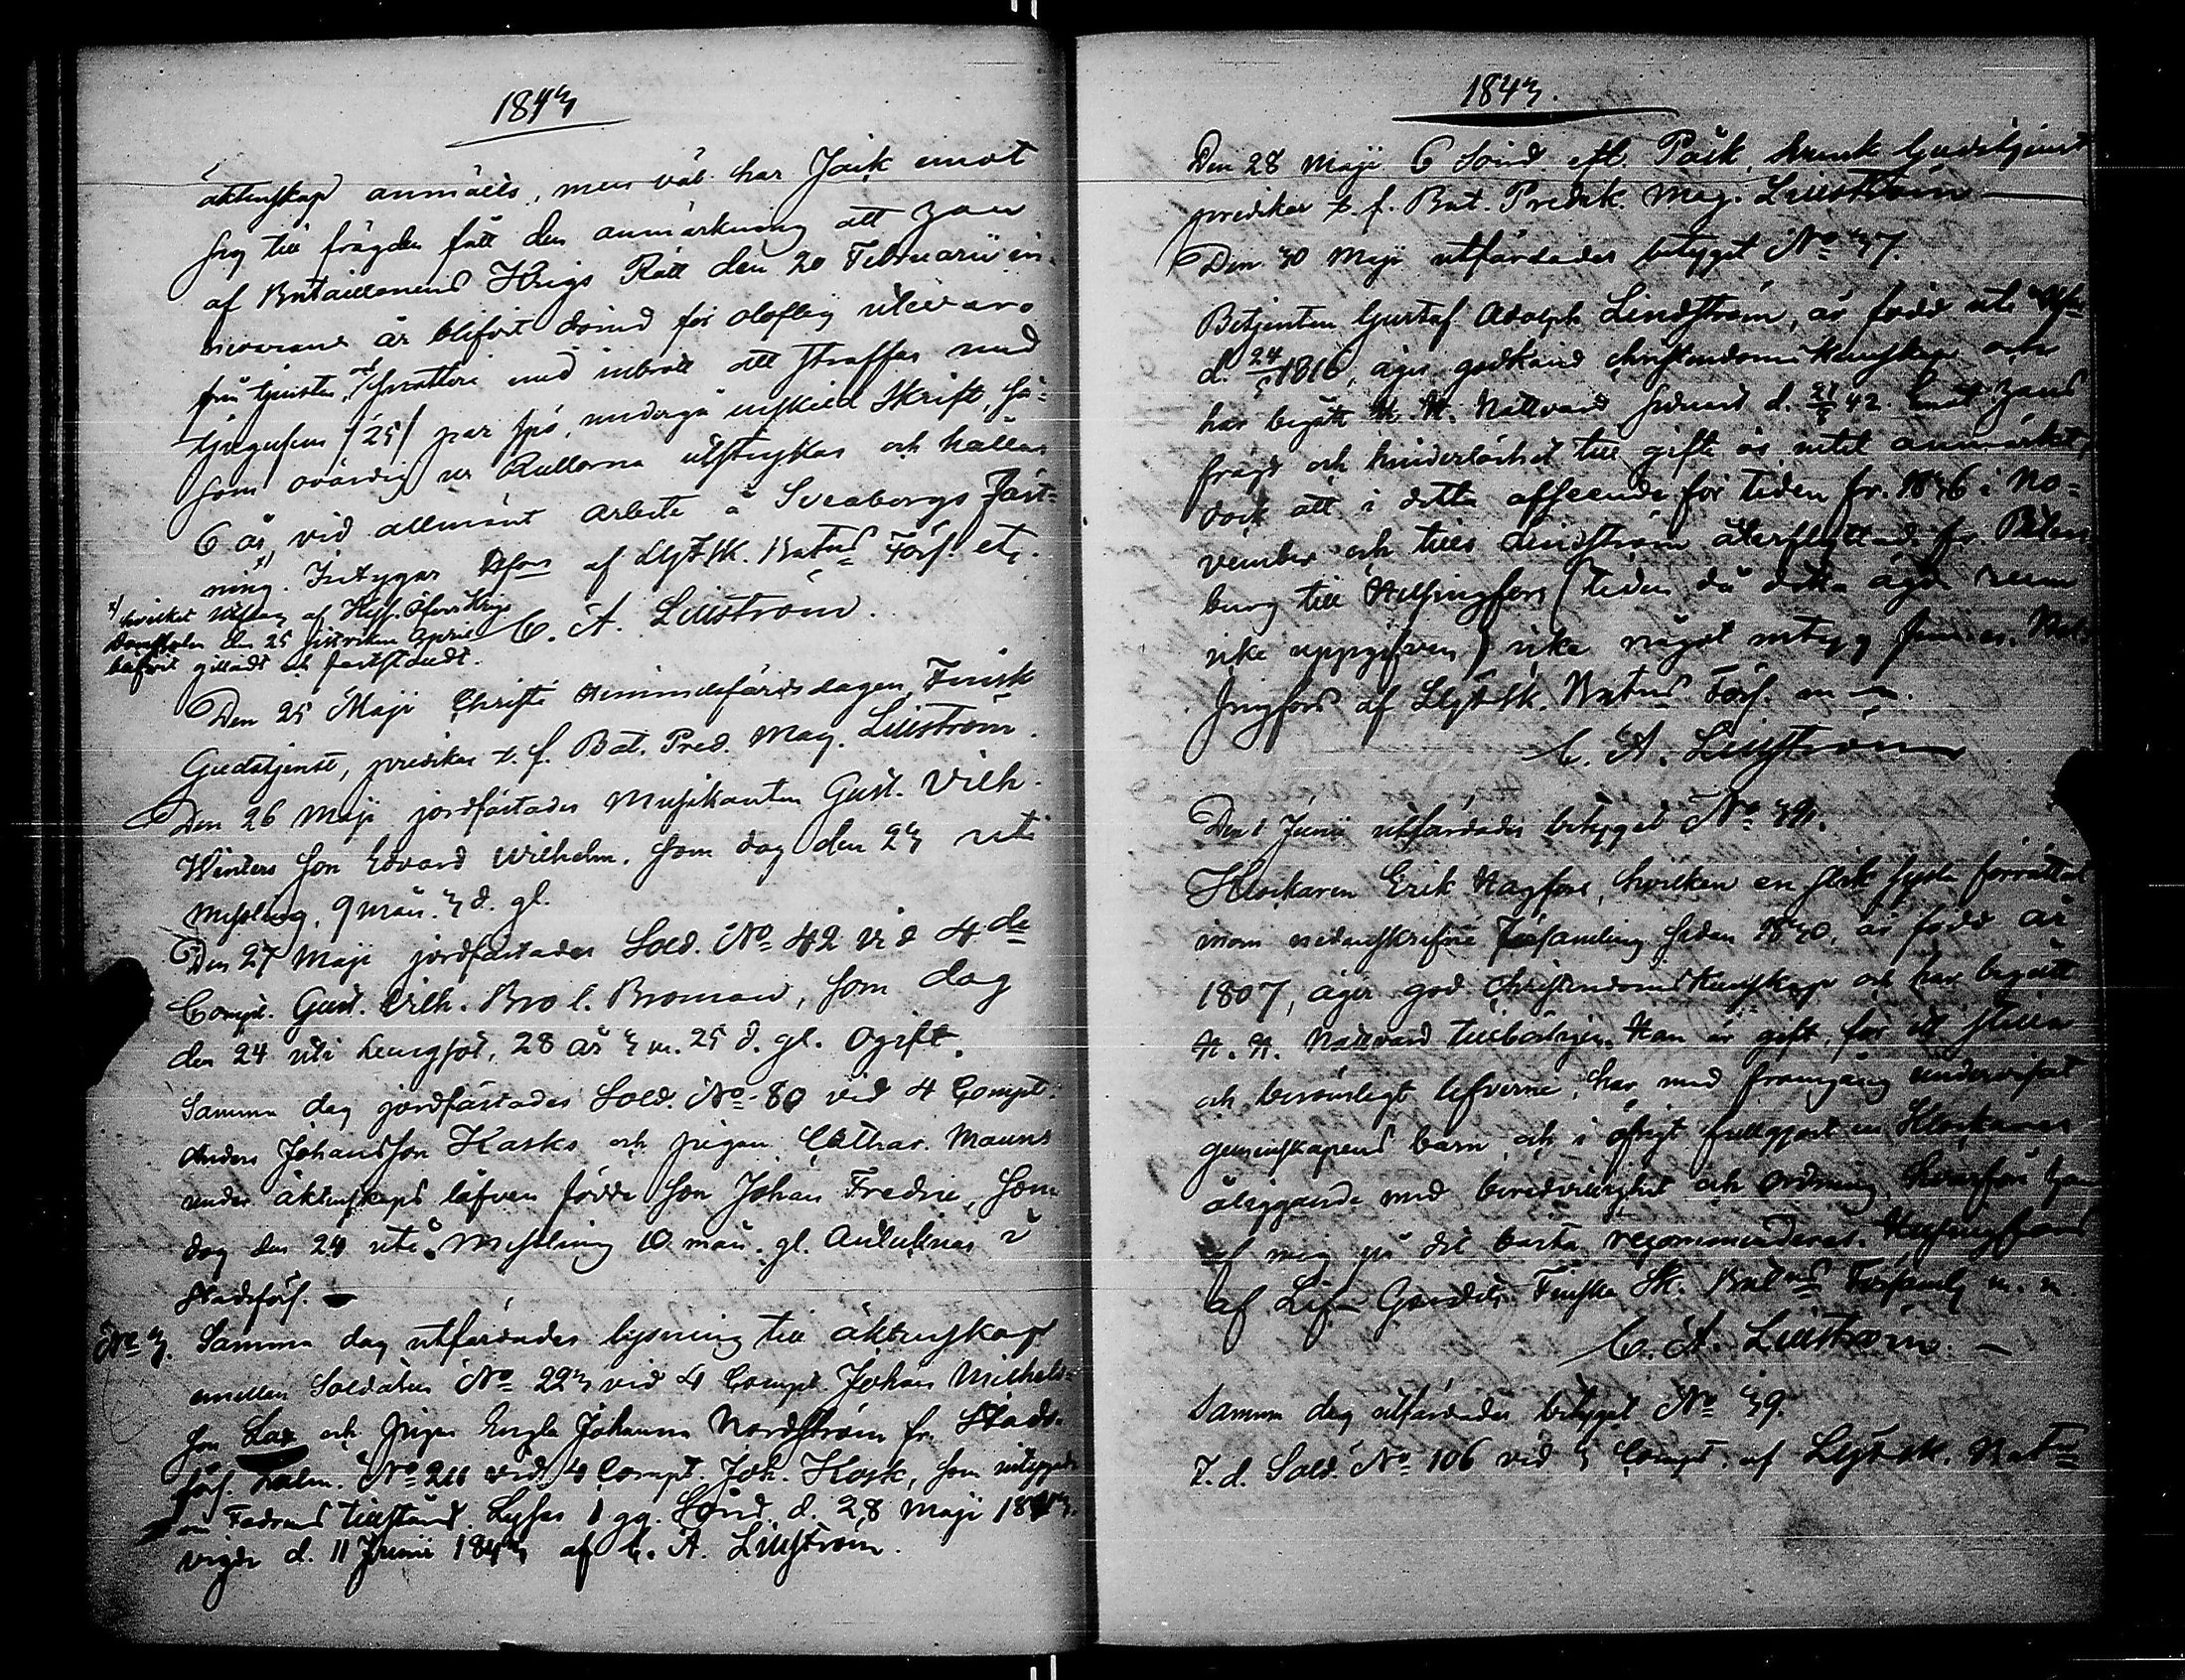 1843
äktenskap anmäldt, men väl har Jack emot
sig till frägden fått den anmärkning att han
af Bataillonens Krigs Rätt den 20 Februarii in-
nevarande år blifvit dömd för oloflig utevaro
från tjensten, snatteri med inbrott att straffas med
tjugufem /25/ par spö, undergå enskild skrift, så-
som ovärdig ur Rullorna utstrykas och hållas
6 år, vid allmänt arbete å Sveaborgs Fäst-
ning. Intygar H:fors af LGFSk. Bat:ns Förs. etc.
C. A. Lillström.
x/ hvilket utslag af Höfs. Öfver Krigs
domstolen den 25 sistvikne April
blifvit gilladt och fastställdt.
Den 25 Maji Christi Himmelsfärdsdagen, Finsk
Gudstjenst, predikar t. f. Bat. Pred. Mag. Lillström.
Den 26 Maji jordfästades Musikanten Gust. Vilh.
Winters son Edvard Wilhelm, som dog den 23 uti
Messling, 9 mån. 3 d. gl.
Den 27 Maji jordfästades Sold. No 42 vid 4de
Comp. Gust. Vilh. Bro l. Broman, som dog
den 24 uti Lungsot, 28 år 3 m. 25 d. gl. Ogift.
Samma dag jordfästades Sold. No 80 vid 4 Comp:
Anders Johansson Kasks och pigan Cathar. Mauns
under äktenskaps löfven födde son Johan Fredric, som
dog den 24 uti Messling 10 mån. gl. i
Stadsförs.
No 3. Samma dag utfärdades lysning till äktenskap
emellan Soldaten No 223 vid 4 Comp. Johan Michels-
son Lax och pigan Engla Johanna Nordström fr. Stads-
förs. No 211 vid 4 Comp. Joh. Kask, som intygade
om Fadrens tillstånd. Lyses 1 gg. Sönd. d. 28 Maji 1843.
vigde d. 11 Junii 1843 af C. A. Lillström.
1843.
Den 28 Maji 6 Sönd. eft. Påsk, Svensk Gudstjenst
predikar t. f. Bat. Predik. Mag. Lillström
Den 30 Maji utfärdades betyget No 37.
Betjenten Gustaf Adolph Lindström, är född uti
d. 24/5 1816, äger godkänd christendoms kunskap och
har begått H. H. Nattvard senast d. 21/5 42. Emot hans
frägd och hinderlöshet till gifte är intet anmärkt,
dock att i detta afseende för tiden fr. 1836 i No-
vember och tills Lindström återflyttad fr. Peters-
burg till Helsingfors (tiden då detta ägde rum
icke uppgifven) icke något intyg finnes. Hel-
singfors af LGFSk. Bat:ns Förs. m m.
C. A. Lillström
Den 1 Junii utfärdades betyget No 38.
Klockaren Erik Hagfors, hvilken en slik syssla förrättat
inom nedanskrifne Församling sedan 1830, är född år
1807, äger god Christendomskunskap och har begått
H. H. Nattvard tillbörligen. Han är gift, för ett stilla
och berömligt lefverne, har med framgång undervisat
gemenskapens barn, och i öfrigt fullgjort en Klockares
åligganden med beredvillighet och ordning, hvarför han
af mig på det bästa recommenderas. Helsingfors
af Lif-Gardets Finska Sk. Bat:ns Församl. m. m.
C. A. Lillström.
Samma dag utfärdades betyget No 39.
F. d. Sold. No 106 vid 3 Comp. af LGFSk. Bat:n